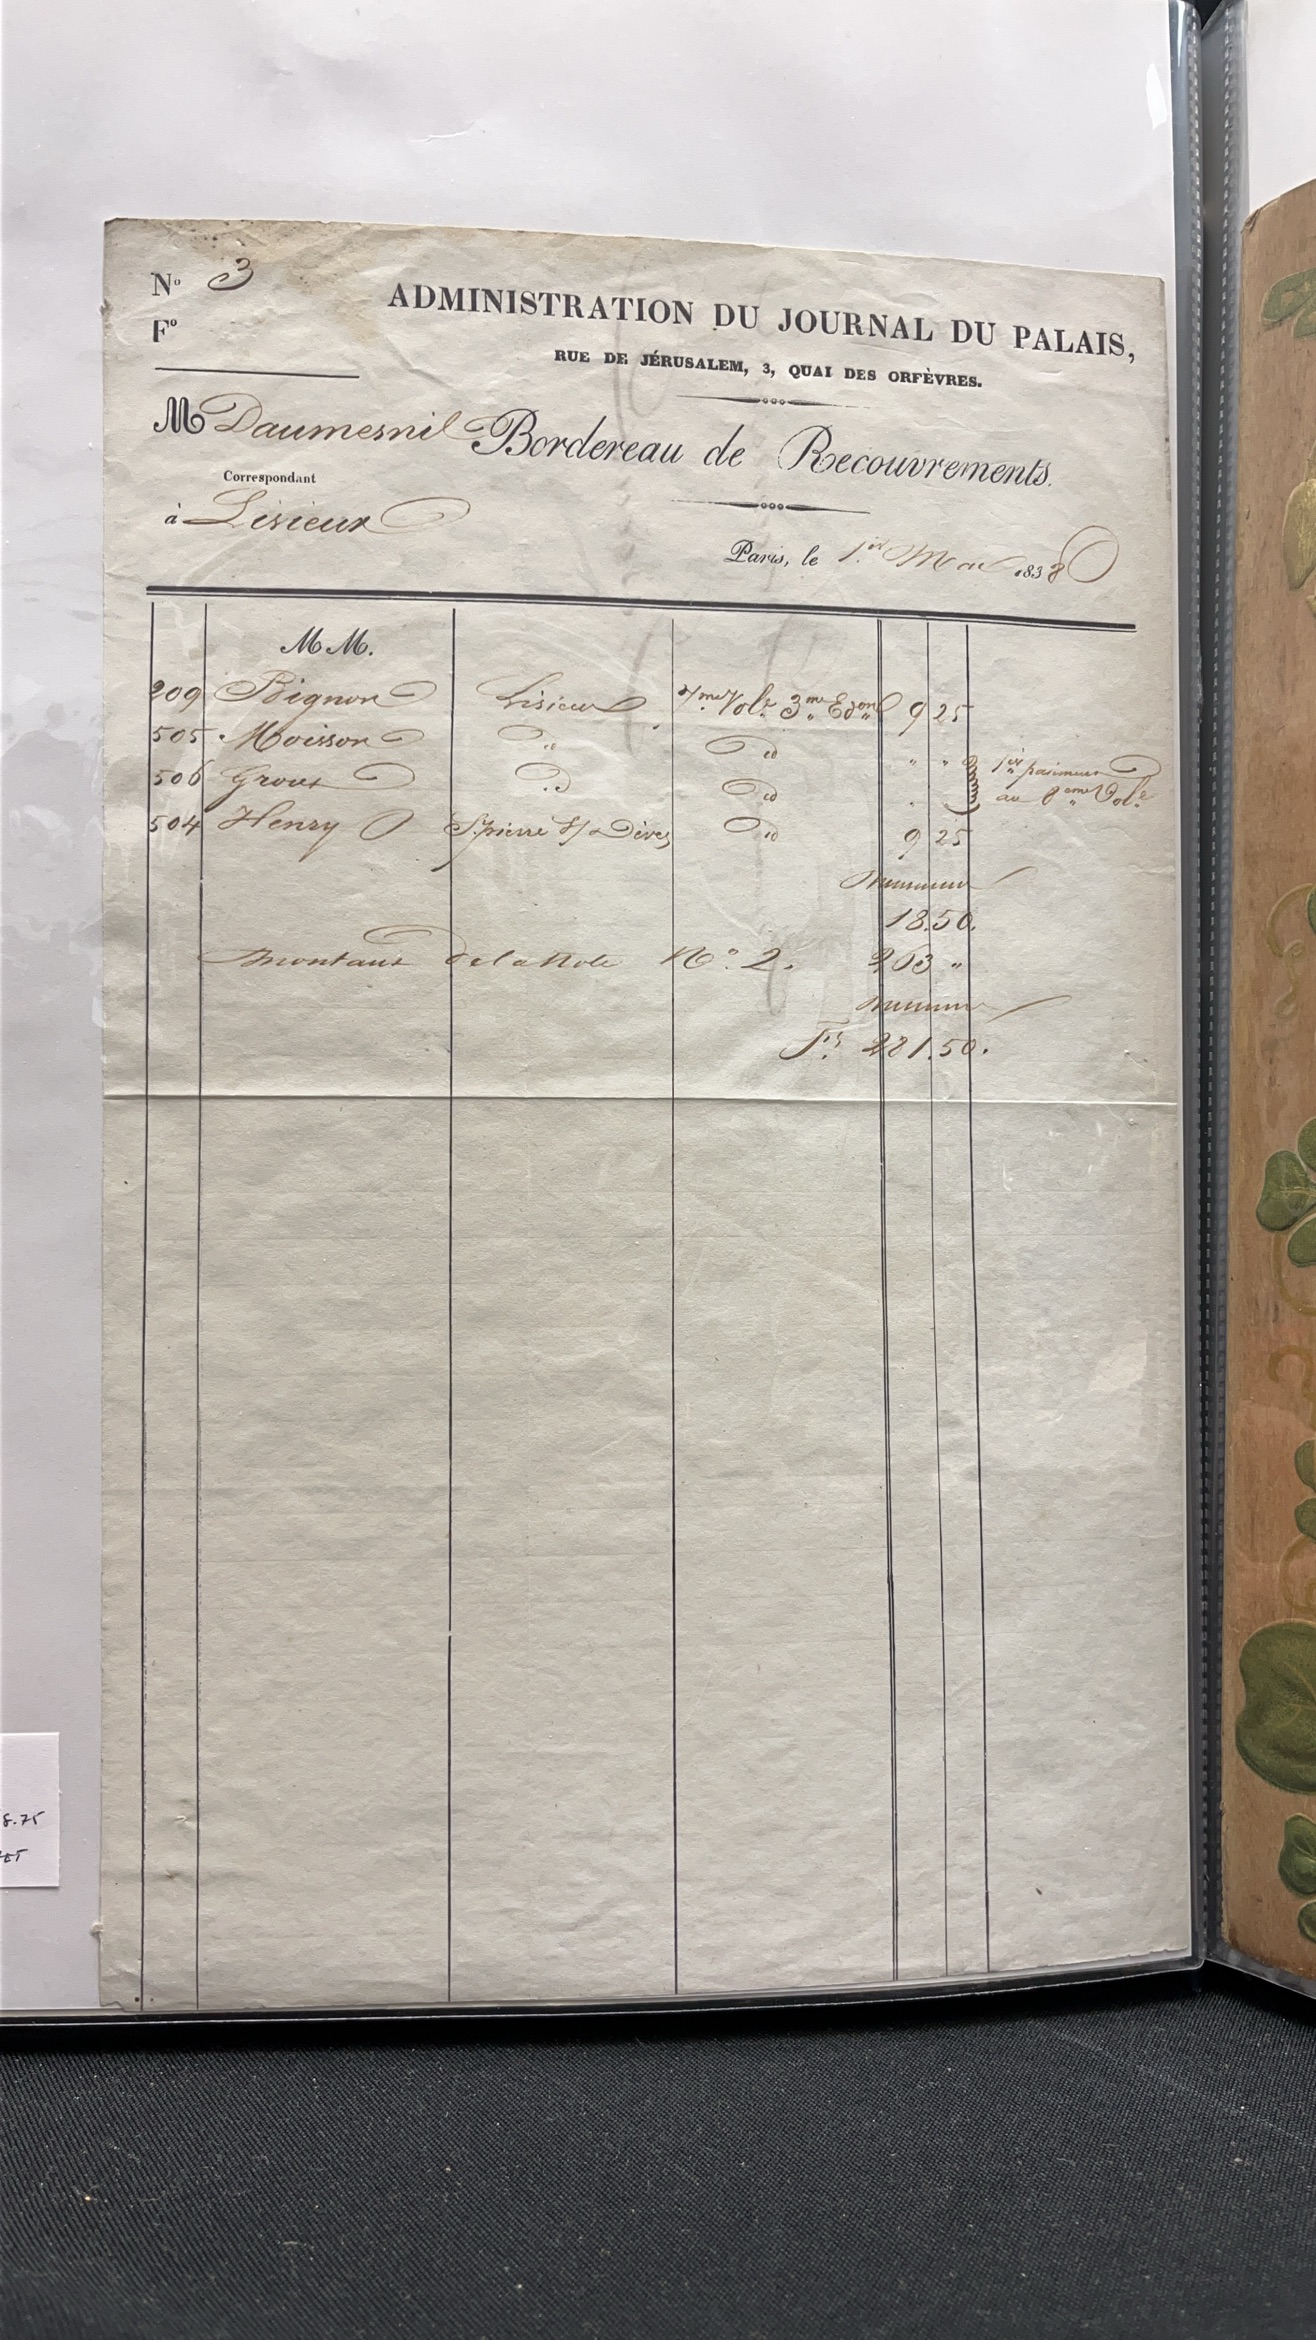 N° 3
F°
ADMINISTRATION DU JOURNAL DU PALAIS,
RUE DE JÉRUSALEM, 3, QUAI DES ORFÈVRES.
M Daumesnil
Bordereau de Recouvrements.
Correspondant
à Lisieux
Paris, le 1er Mai 1838
MM.
209 Bignon Lisieux 7me Vole 3me Edon 9 25
505 Moisson do do " "
506 Grout do do " 1er paiement
au 8eme Vole
504 Henry St pierre s/ Dives do 9 25
18.50.
Montant de la Note N° 2. 263 "
Frs 281.50.
8.75